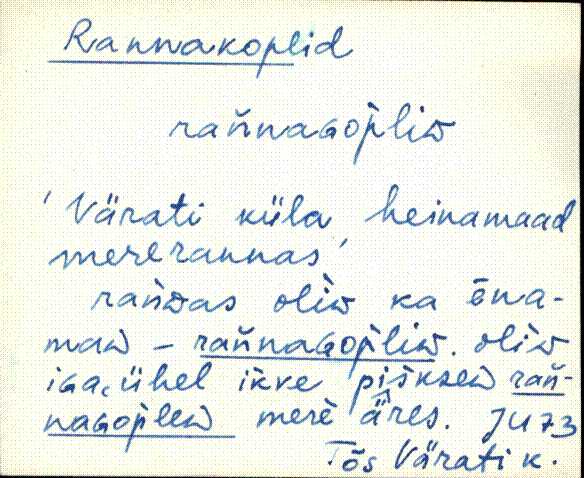 Rannakoplid
rañnaɢop̀liᴅ
'Värati küla heinamaad
mererannas'
rañᴅas oliᴅ ka ēna-
maᴅ – rañnaɢop̀liᴅ. oliᴅ
iɢa ühel ikve piškseᴅ rañ-
naɢop̀leᴅ merè äres. JU 73
Tõs Värati k.